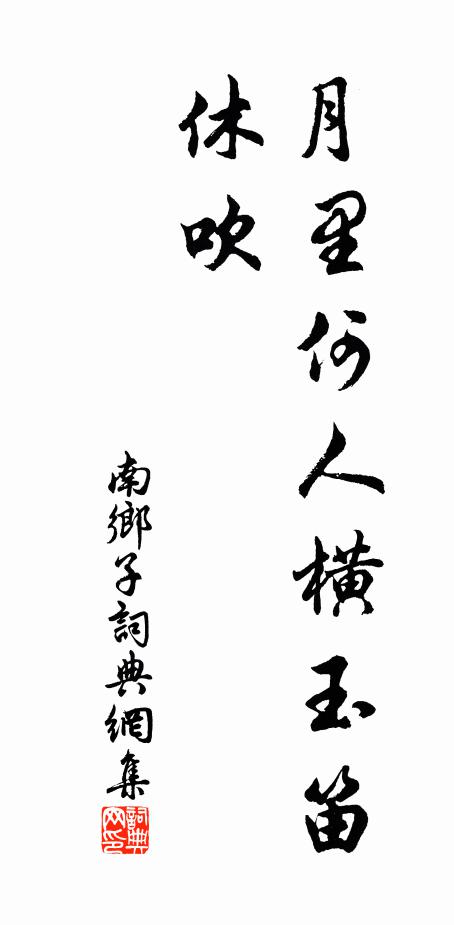 月里何人横玉笛
休吹
南鄉子詞典網集
詞典网印